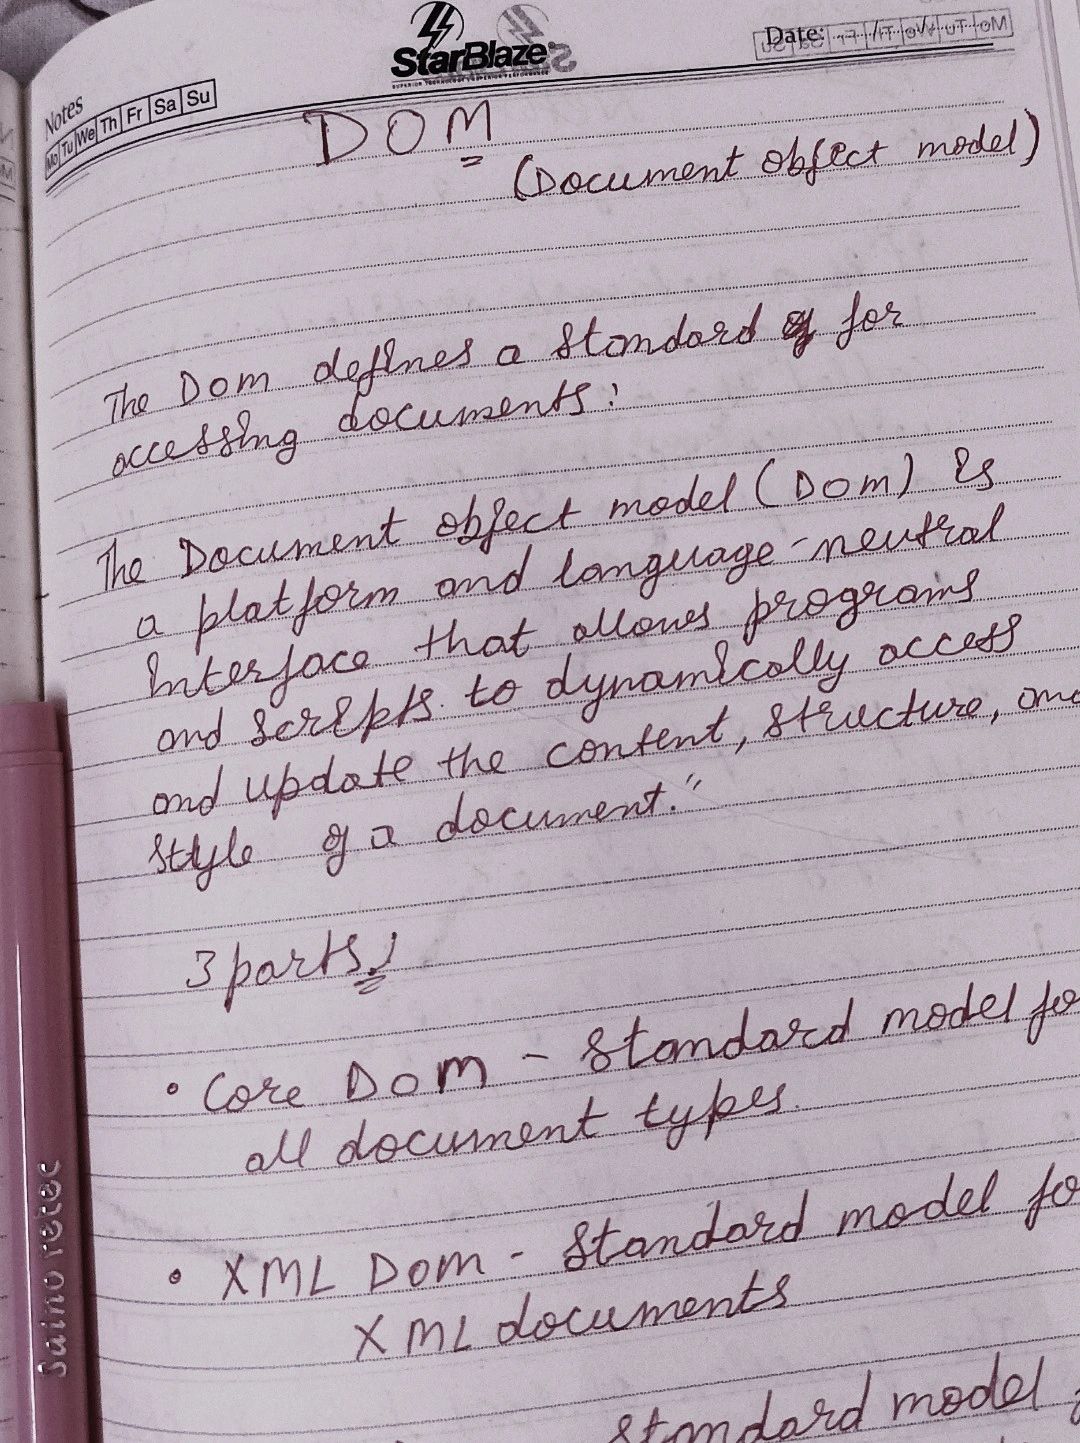 StarBlaze
SUPERIOR TECHNOLOGY SUPERIOR PERFORMANCE
Date:
Notes
Mo Tu We Th Fr Sa Su
DOM
(Document object model)
The Dom defines a standard for
accessing documents:
The Document object model (DOM) is
a platform and language-neutral
interface that allows programs
and scripts to dynamically access
and update the content, structure, and
style of a document."
3 parts:
• Core DOM - Standard model fo
all document types.
• XML DOM - Standard model fo
XML documents
Standard model
Saino retec